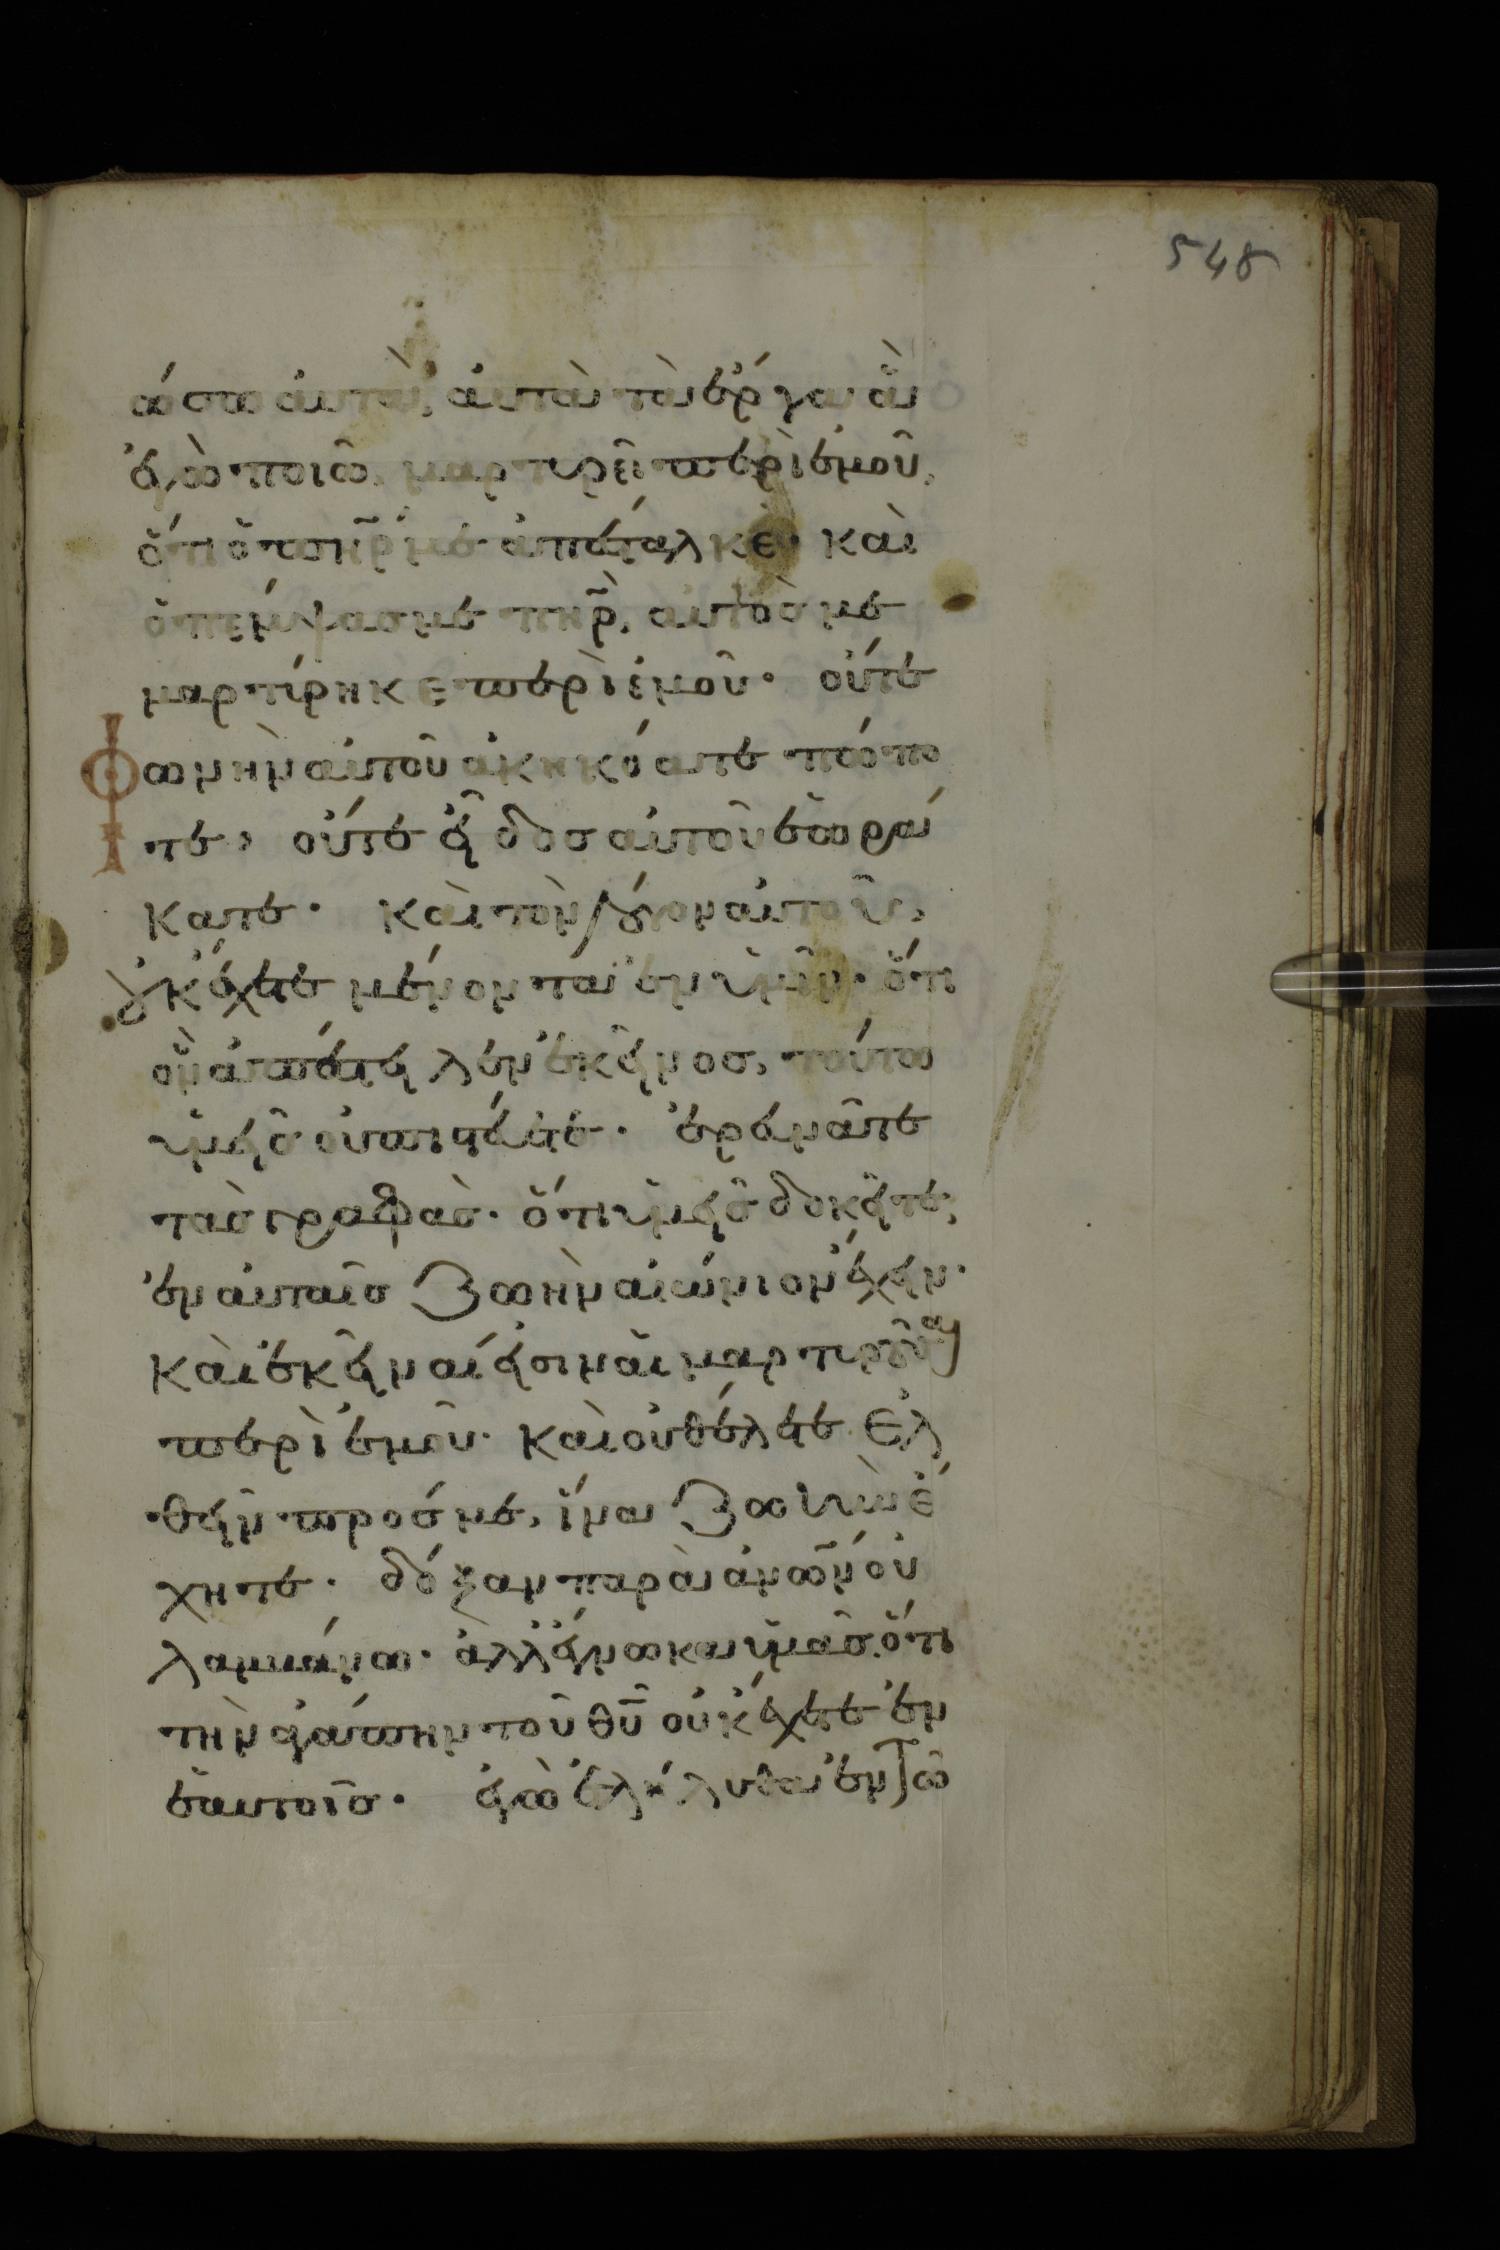 548
ώσω αυτὰ, αὐτὰ τὰ ἔργα ἃ
ἐγὼ ποιῶ, μαρτυρεῖ περὶ ἐμοῦ,
ὅτι ὁ πη̅ρ με ἀπέσταλκε· καὶ
ὁ πέμψας με πη̅ρ, αὐτὸς με
μαρτύρηκε περὶ ἐμοῦ· οὔτε
Φωνὴν αὐτοῦ ἀκηκόατε πώπο
τε, οὔτε εἶδος αὐτοῦ ἑωρά
κατε· καὶ τὸν λόγον αὐτοῦ,
οὐκ ἔχετε μένονται ἐν ὑμῖν· ὅτι
ὃν ἀπέστειλεν ἐκεῖνος, τούτω
ὑμεῖς οὐ πιστεύετε· ἐρευνᾶτε
τὰς γραφὰς· ὅτι ὑμεῖς δοκεῖτε,
ἐν αὐταῖς ζωὴν αἰώνιον ἔχειν·
καὶ ἐκεῖναί εἰσιν αἱ μαρτυροῦσαι
περὶ ἐμοῦ· καὶ οὐ θέλετε ἐλ
θεῖν πρός με, ἵνα ζωὴν ἔ
χητε· δόξαν παρὰ ἀν̅ω̅ν οὐ
λαμβάνω· ἀλλ' ἔγνωκα ὑμᾶς, ὅτι
τὴν ἀγάπην τοῦ θ̅υ̅ οὐκ ἔχετε ἐν
ἑαυτοῖς· ἐγὼ ἐλήλυθα ἐν τῶ